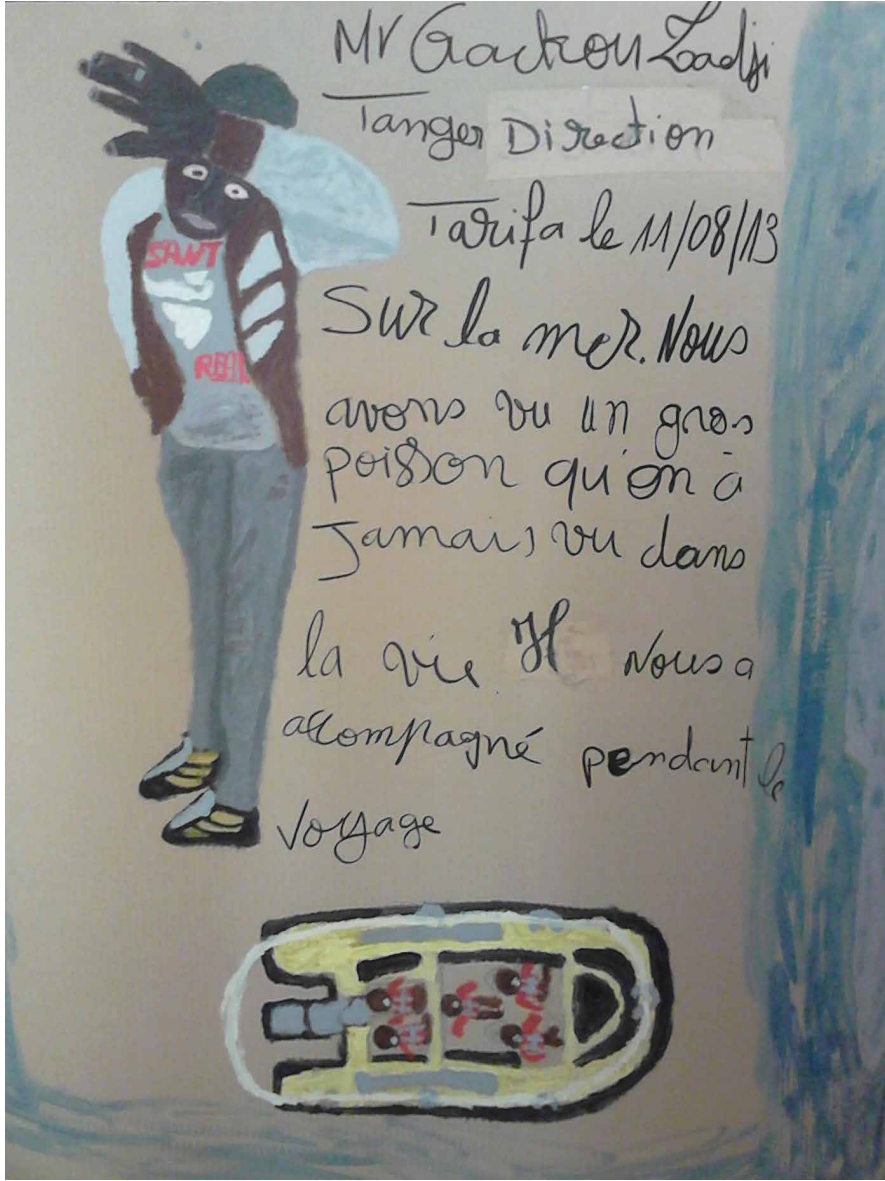 Mr Gackou Zadji
Tanger Direction
Tarifa le 11/08/13
Sur la mer. Nous
avons vu un gros
poisson qu'on à
Jamais vu dans
la vie Il Nous a
accompagné pendant le
voyage
SANT
REAL